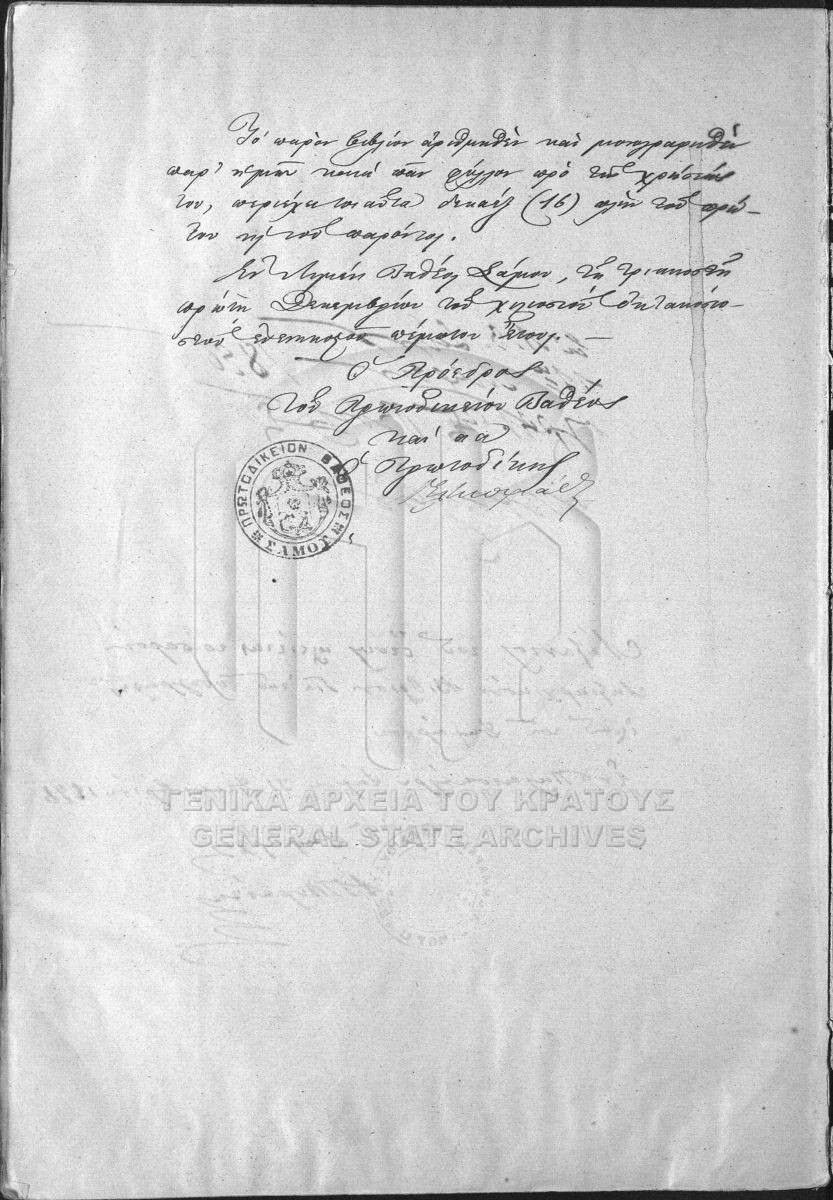 Τὸ παρὸν βιβλίον ἀριθμηθὲν καὶ μονογραφηθὲν
παρ' ἡμῶν κατὰ πᾶν φύλλον πρὸ τῆς χρήσεώς
του, περιέχει τοιαῦτα δεκαὲξ (16) πλὴν τοῦ πρώ-
του καὶ τοῦ παρόντος.
Ἐν Λιμένι Βαθέος Σάμου, τῇ τριακοστῇ
πρώτῃ Δεκεμβρίου τοῦ χιλιοστοῦ ὀκτακοσιο-
στοῦ ἐνενηκοστοῦ πέμπτου ἔτους. —
Ὁ Πρόεδρος
τοῦ Πρωτοδικείου Βαθέος
καὶ αα
Ὁ Πρωτοδίκης
ΠΡΩΤΟΔΙΚΕΙΟΝ ΒΑΘΕΟΣ
ΣΑΜΟΥ
ΓΕΝΙΚΑ ΑΡΧΕΙΑ ΤΟΥ ΚΡΑΤΟΥΣ
GENERAL STATE ARCHIVES